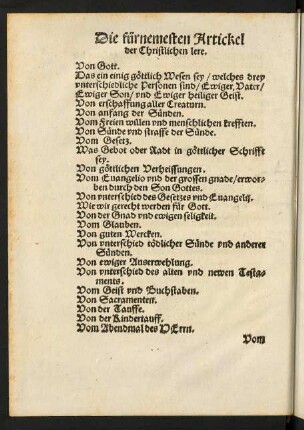 Die fürnemesten Artickel
der Christlichen lere.
Von Gott.
Das ein einig göttlich Wesen sey / welches drey
vnterschiedliche Personen sind / Ewiger Vater /
Ewiger Son / vnd Ewiger heiliger Geist.
Von erschaffung aller Creaturn.
Von anfang der Sünden.
Vom Freien willen vnd menschlichen krefften.
Von Sünde vnd straffe der Sünde.
Vom Gesetz.
Was Gebot oder Radt in göttlicher Schrifft
sey.
Von göttlichen Verheissungen.
Vom Euangelio vnd der grossen gnade / erwor-
ben durch den Son Gottes.
Von vnterschied des Gesetzes vnd Euangelij.
Wie wir gerecht werden für Gott.
Von der Gnad vnd ewigen seligkeit.
Vom Glauben.
Von guten Wercken.
Von vnterschied tödlicher Sünde vnd anderer
Sünden.
Von ewiger Auserwehlung.
Von vnterschied des alten vnd newen Testa-
ments.
Vom Geist vnd Buchstaben.
Von Sacramenten.
Von der Tauffe.
Von der Kindertauff.
Vom Abendmal des HErrn.
Vom